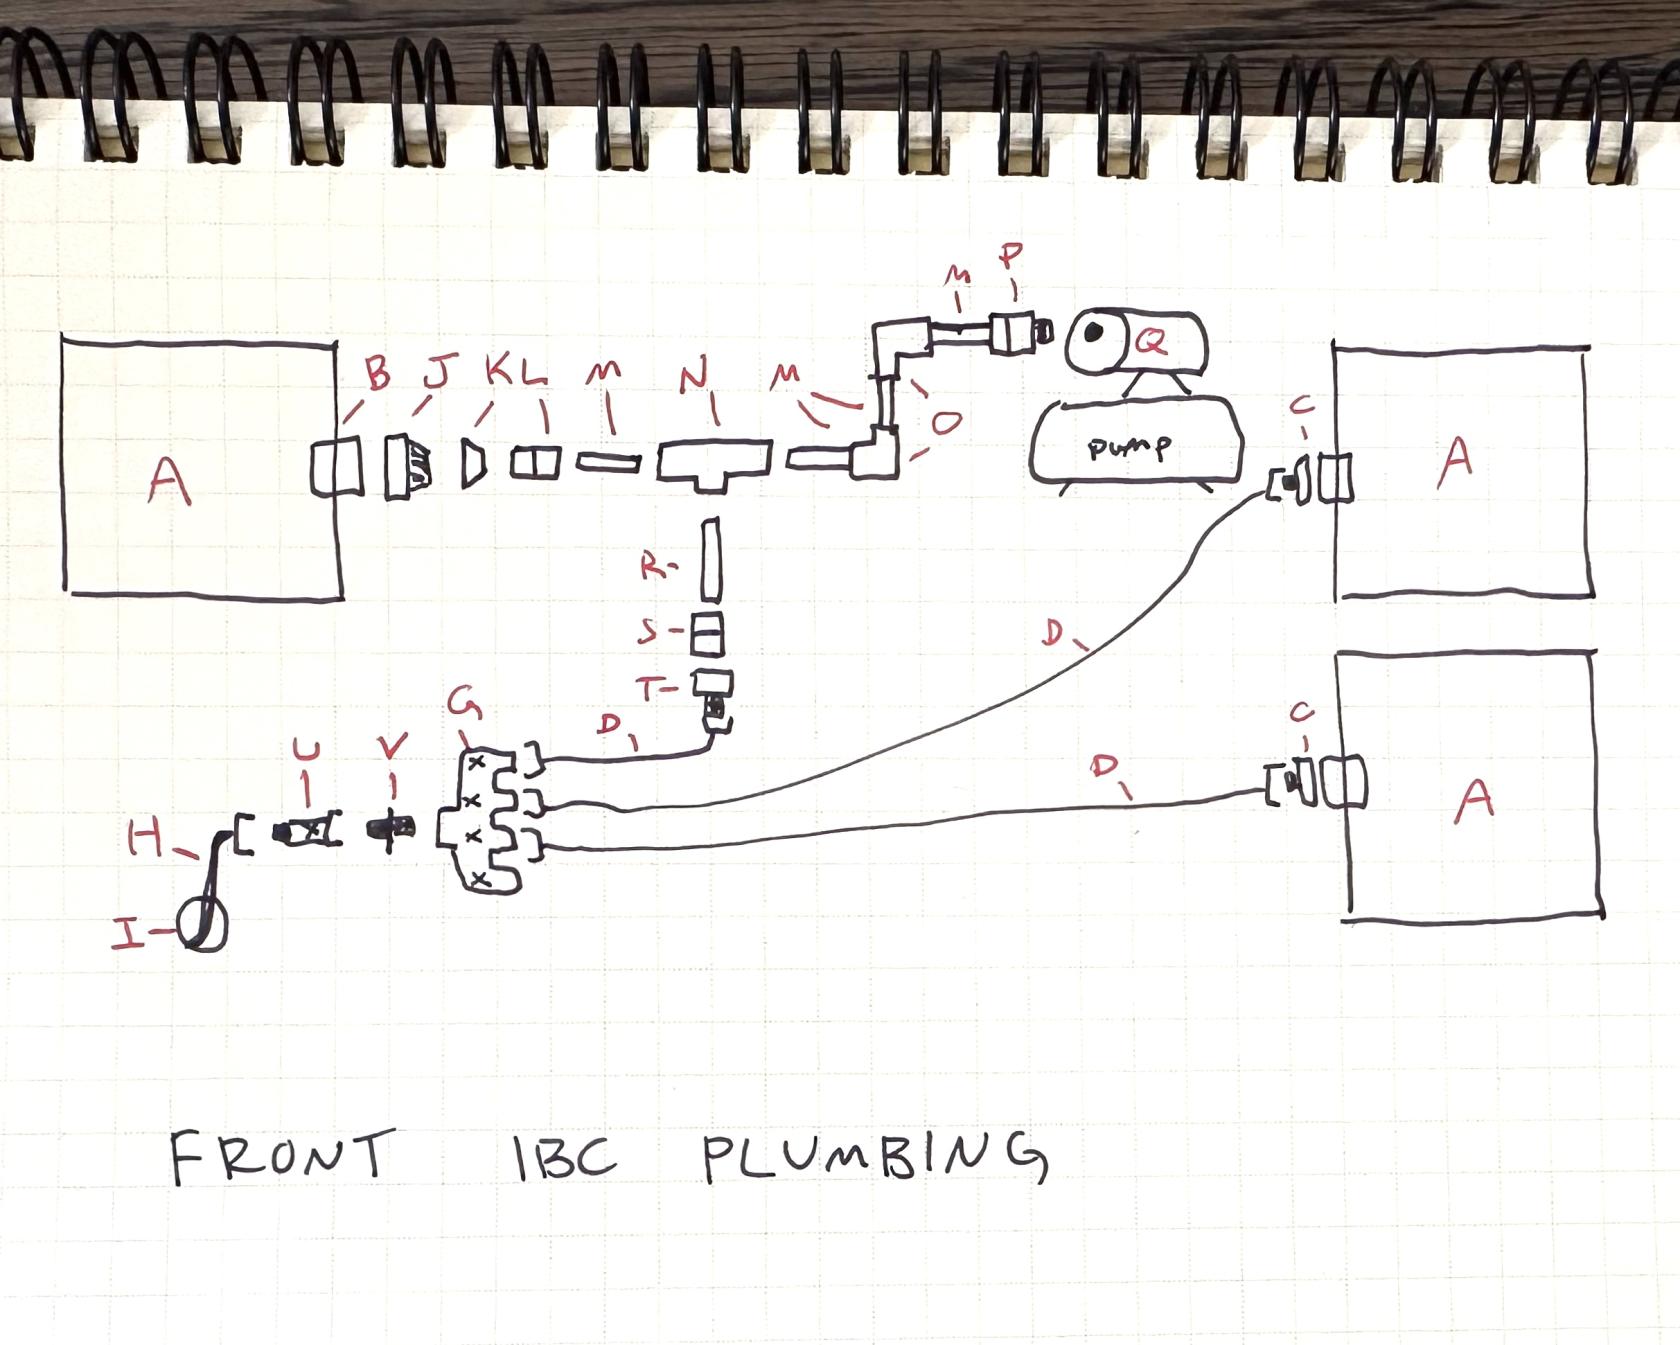 P
M
Q
B J K L M N M
O
C
A
pump
A
R
S
D
T
G
D
C
U V
D
H
A
I
FRONT IBC PLUMBING